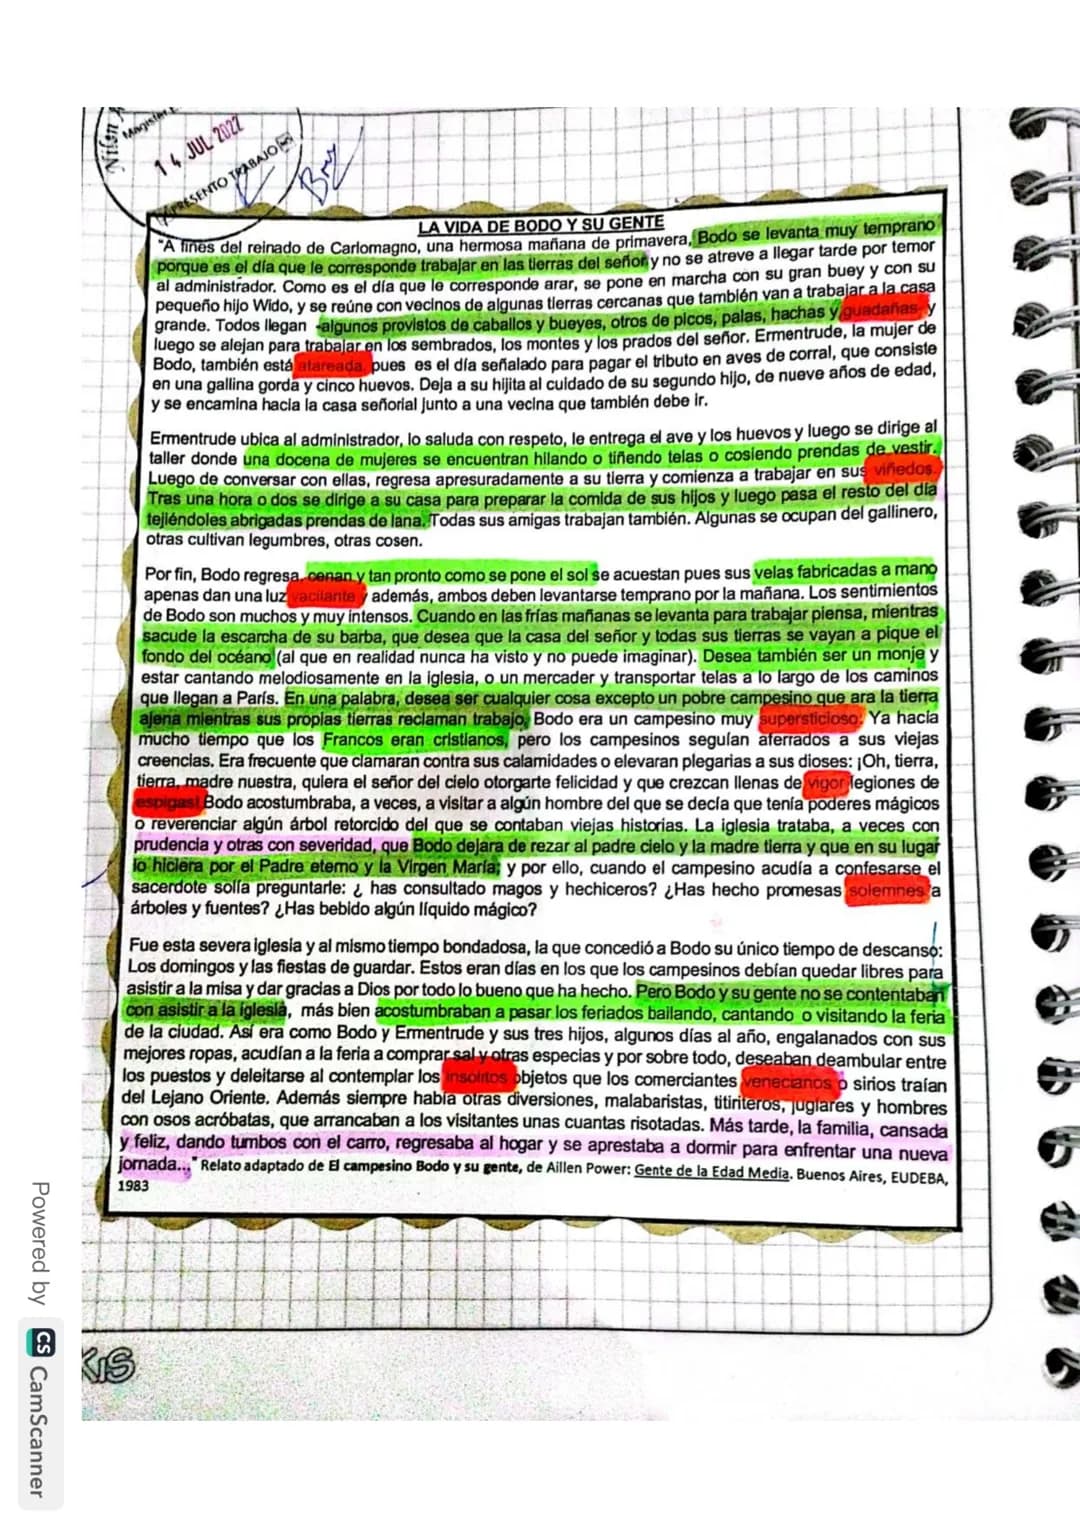 14 JUL 2022
PRESENTO TRABAJO
LA VIDA DE BODO Y SU GENTE
"A fines del reinado de Carlomagno, una hermosa mañana de primavera, Bodo se levanta muy temprano
porque es el día que le corresponde trabajar en las tierras del señor y no se atreve a llegar tarde por temor
al administrador. Como es el día que le corresponde arar, se pone en marcha con su gran buey y con su
pequeño hijo Wido, y se reúne con vecinos de algunas tierras cercanas que también van a trabajar a la casa
grande. Todos llegan -algunos provistos de caballos y bueyes, otros de picos, palas, hachas y guadañas, y
luego se alejan para trabajar en los sembrados, los montes y los prados del señor. Ermentrude, la mujer de
Bodo, también está atareada, pues es el día señalado para pagar el tributo en aves de corral, que consiste
en una gallina gorda y cinco huevos. Deja a su hijita al cuidado de su segundo hijo, de nueve años de edad,
y se encamina hacia la casa señorial junto a una vecina que también debe ir.
Ermentrude ubica al administrador, lo saluda con respeto, le entrega el ave y los huevos y luego se dirige al
taller donde una docena de mujeres se encuentran hilando o tiñendo telas o cosiendo prendas de vestir.
Luego de conversar con ellas, regresa apresuradamente a su tierra y comienza a trabajar en sus viñedos.
Tras una hora o dos se dirige a su casa para preparar la comida de sus hijos y luego pasa el resto del día
tejiéndoles abrigadas prendas de lana. Todas sus amigas trabajan también. Algunas se ocupan del gallinero,
otras cultivan legumbres, otras cosen.
Por fin, Bodo regresa, cenan y tan pronto como se pone el sol se acuestan pues sus velas fabricadas a mano
apenas dan una luz vacilante y además, ambos deben levantarse temprano por la mañana. Los sentimientos
de Bodo son muchos y muy intensos. Cuando en las frías mañanas se levanta para trabajar piensa, mientras
sacude la escarcha de su barba, que desea que la casa del señor y todas sus tierras se vayan a pique el
fondo del océano (al que en realidad nunca ha visto y no puede imaginar). Desea también ser un monje y
estar cantando melodiosamente en la iglesia, o un mercader y transportar telas a lo largo de los caminos
que llegan a París. En una palabra, desea ser cualquier cosa excepto un pobre campesino que ara la tierra
ajena mientras sus propias tierras reclaman trabajo. Bodo era un campesino muy supersticioso. Ya hacía
mucho tiempo que los Francos eran cristianos, pero los campesinos seguían aferrados a sus viejas
creencias. Era frecuente que clamaran contra sus calamidades o elevaran plegarias a sus dioses: ¡Oh, tierra,
tierra, madre nuestra, quiera el señor del cielo otorgarte felicidad y que crezcan llenas de vigor legiones de
espigas! Bodo acostumbraba, a veces, a visitar a algún hombre del que se decía que tenía poderes mágicos
o reverenciar algún árbol retorcido del que se contaban viejas historias. La iglesia trataba, a veces con
prudencia y otras con severidad, que Bodo dejara de rezar al padre cielo y la madre tierra y que en su lugar
lo hiciera por el Padre eterno y la Virgen María; y por ello, cuando el campesino acudía a confesarse el
sacerdote solía preguntarle: ¿ has consultado magos y hechiceros? ¿Has hecho promesas solemnes a
árboles y fuentes? ¿Has bebido algún líquido mágico?
Fue esta severa iglesia y al mismo tiempo bondadosa, la que concedió a Bodo su único tiempo de descanso:
Los domingos y las fiestas de guardar. Estos eran días en los que los campesinos debían quedar libres para
asistir a la misa y dar gracias a Dios por todo lo bueno que ha hecho. Pero Bodo y su gente no se contentaban
con asistir a la iglesia, más bien acostumbraban a pasar los feriados bailando, cantando o visitando la feria
de la ciudad. Así era como Bodo y Ermentrude y sus tres hijos, algunos días al año, engalanados con sus
mejores ropas, acudían a la feria a comprar sal y otras especias y por sobre todo, deseaban deambular entre
los puestos y deleitarse al contemplar los insólitos objetos que los comerciantes venecianos o sirios traían
del Lejano Oriente. Además siempre había otras diversiones, malabaristas, titiriteros, juglares y hombres
con osos acróbatas, que arrancaban a los visitantes unas cuantas risotadas. Más tarde, la familia, cansada
y feliz, dando tumbos con el carro, regresaba al hogar y se aprestaba a dormir para enfrentar una nueva
jornada..." Relato adaptado de El campesino Bodo y su gente, de Aillen Power: Gente de la Edad Media. Buenos Aires, EUDEBA,
1983
Powered by CS CamScanner